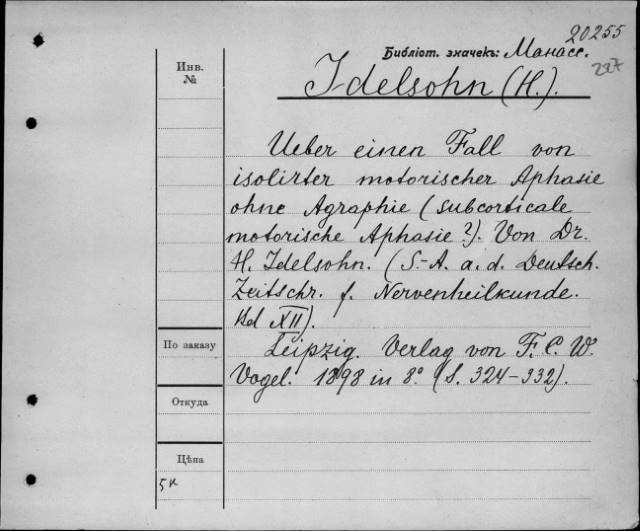 20255
Библіот. значекъ: Манасс.
227
Инв.
№
Idelsohn (H.).
Ueber einen Fall von
isolirter motorischer Aphasie
ohne Agraphie (subcorticale
motorische Aphasie?). Von Dr.
H. Idelsohn. (S.-A. a. d. Deutsch.
Zeitschr. f. Nervenheilkunde.
Bd XII).
По заказу
Leipzig. Verlag von F. C. W.
Vogel. 1898 in 8° (S. 324–332).
Откуда
Цѣна
5к